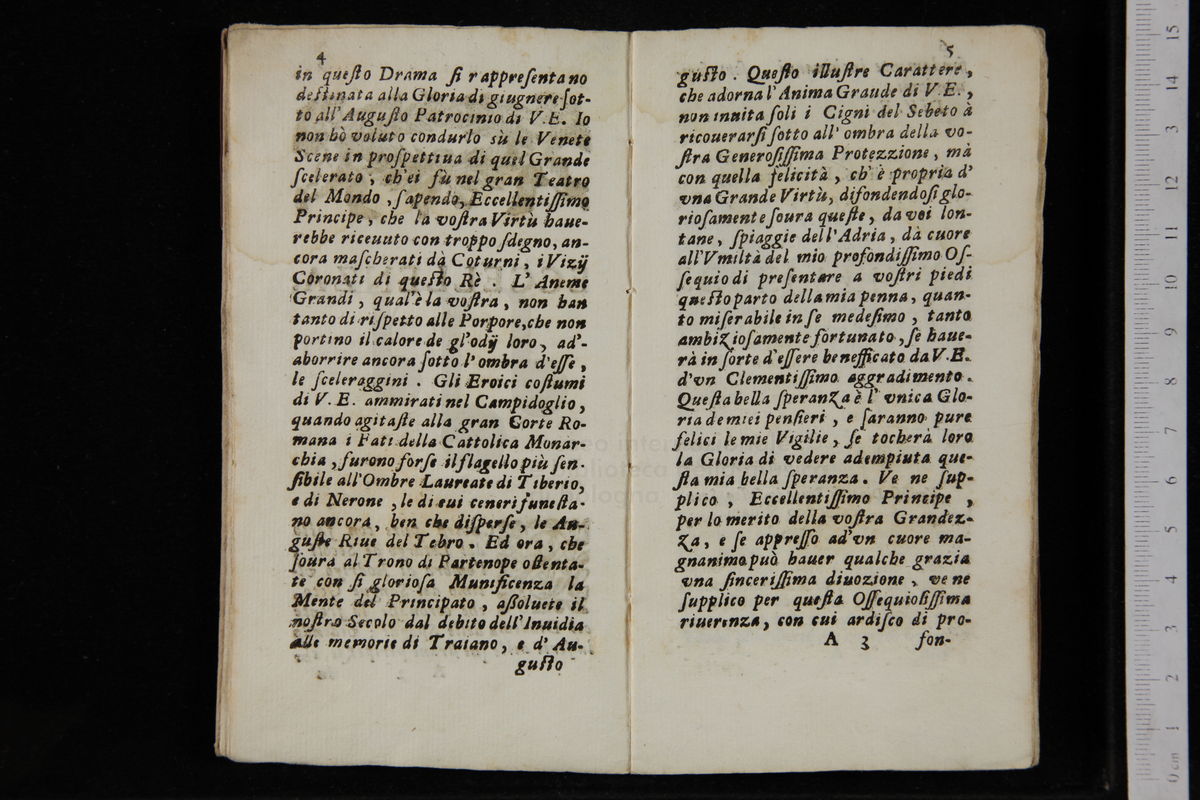 4
in queſto Drama ſi rappreſentano
deſtinata alla Gloria di giugnere ſot-
to all' Auguſto Patrocinio di V.E. Io
non hò voluto condurlo sù le Venete
Scene in proſpettiua di quel Grande
ſcelerato, ch'ei fù nel gran Teatro
del Mondo, ſapendo, Eccellentiſſimo
Principe, che la voſtra Virtù haue-
rebbe riceuuto con troppo ſdegno, an-
cora maſcherati dà Coturni, i Vizij
Coronati di queſto Rè. L' Anime
Grandi, qual'è la voſtra, non han
tanto di riſpetto alle Porpore, che non
portino il calore de gl'odij loro, ad'-
aborrire ancora ſotto l'ombra d'eſſe,
le ſceleraggini. Gli Eroici coſtumi
di V. E. ammirati nel Campidoglio,
quando agitaſte alla gran Corte Ro-
mana i Fati della Cattolica Monar-
chia, furono forſe il flagello più ſen-
ſibile all'Ombre Laureate di Tiberio,
e di Nerone, le di cui ceneri funeſta-
no ancora, ben che diſperſe, le Au-
guſte Riue del Tebro. Ed ora, che
ſoura al Trono di Partenope oſtenta-
te con ſi glorioſa Munificenza la
Mente del Principato, aſſoluete il
noſtro Secolo dal debito dell'Inuidia
alle memorie di Traiano, e d' Au-
guſto
5
guſto. Queſto illuſtre Carattere,
che adorna l'Anima Graude di V.E.,
non inuita ſoli i Cigni del Sebeto à
ricouerarſi ſotto all' ombra della vo-
ſtra Generoſiſſima Protezzione, mà
con quella felicità, ch' è propria d'
vna Grande Virtù, difondendoſi glo-
rioſamente ſoura queſte, da voi lon-
tane, ſpiaggie dell'Adria, dà cuore
all'Vmiltà del mio profondiſſimo Oſ-
ſequio di preſentare a voſtri piedi
queſto parto della mia penna, quan-
to miſerabile in ſe medeſimo, tanto
ambizioſamente fortunato, ſe haue-
rà in ſorte d'eſſere benefficato da V.E.
d'vn Clementiſſimo aggradimento.
Queſta bella ſperanza è l' vnica Glo-
ria de miei penſieri, e ſaranno pure
felici le mie Vigilie, ſe tocherà loro
la Gloria di vedere adempiuta que-
ſta mia bella ſperanza. Ve ne ſup-
plico, Eccellentiſſimo Principe,
per lo merito della voſtra Grandez-
za, e ſe appreſſo ad'vn cuore ma-
gnanimo può hauer qualche grazia
vna ſinceriſſima diuozione, ve ne
ſupplico per queſta Oſſequioſiſſima
riuerenza, con cui ardiſco di pro-
A 3 fon-